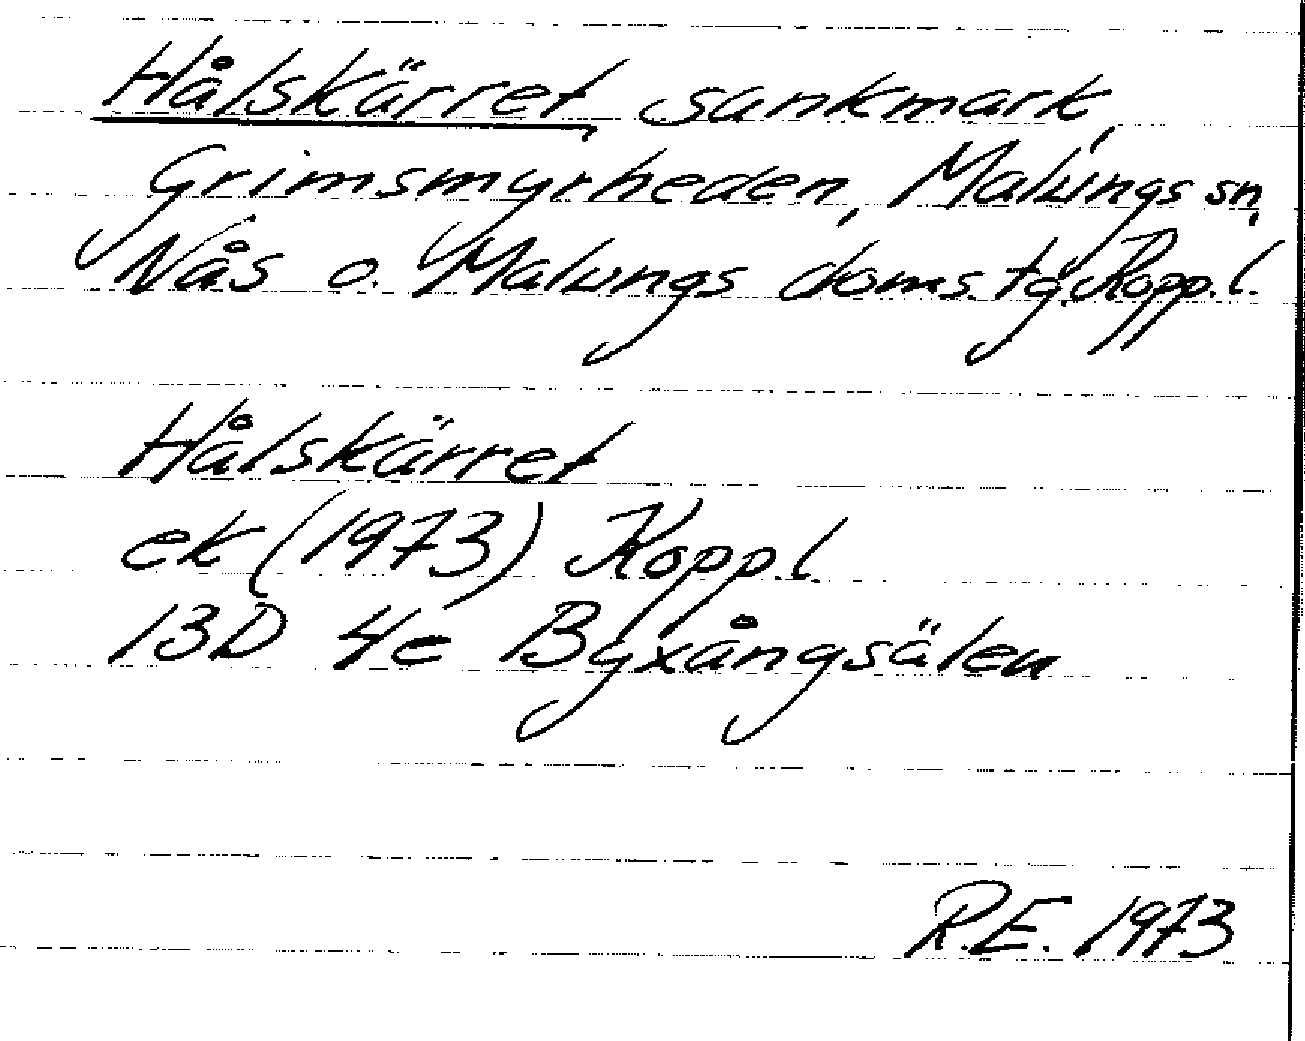 Hålskärret, sankmark,
Grimsmyrheden, Malungs sn,
Nås o. Malungs doms. tg. Kopp. l.
Hålskärret
ek (1973) Kopp. l.
13D 4e Byxångsälen
R.E. 1973